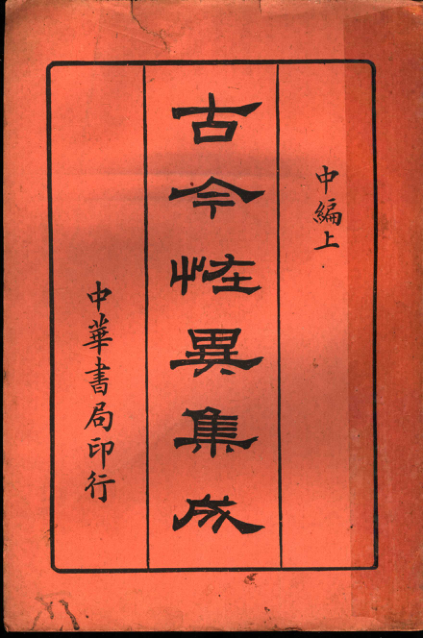 中編上
古今恠異集成
中華書局印行